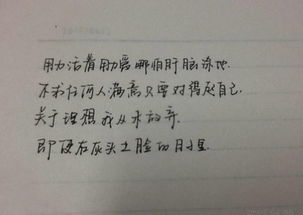 用力活着用力爱哪怕肝脑涂地
不求任何人满意只要对得起自己
关于理想我从未放弃
即使在灰头土脸的日子里